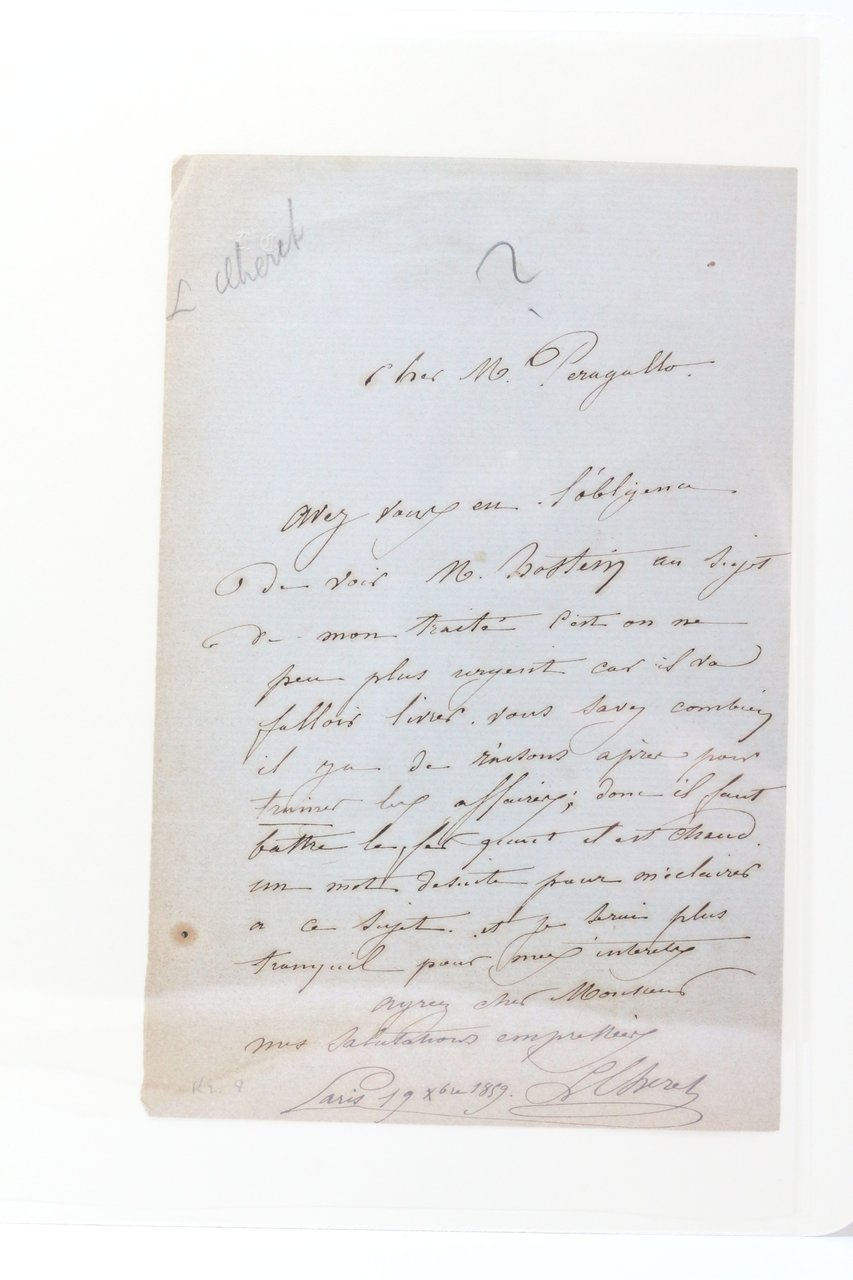 L Cheret
cher M. Peragallo.
Avez vous eu l'obligence
de voir M. au sujet
de mon traité c'est on ne
peu plus urgent car il va
falloir livrer. vous savez combien
il ya de raisons après pour
trainer les affaires; donc il faut
battre le fer quant il est chaud.
un mot desuite pour m'éclairer
a ce sujet. et je serai plus
tranquil pour mes interets
agreez cher Monsieur
mes salutations empressées
Paris 19 xbre 1859. L Cheret